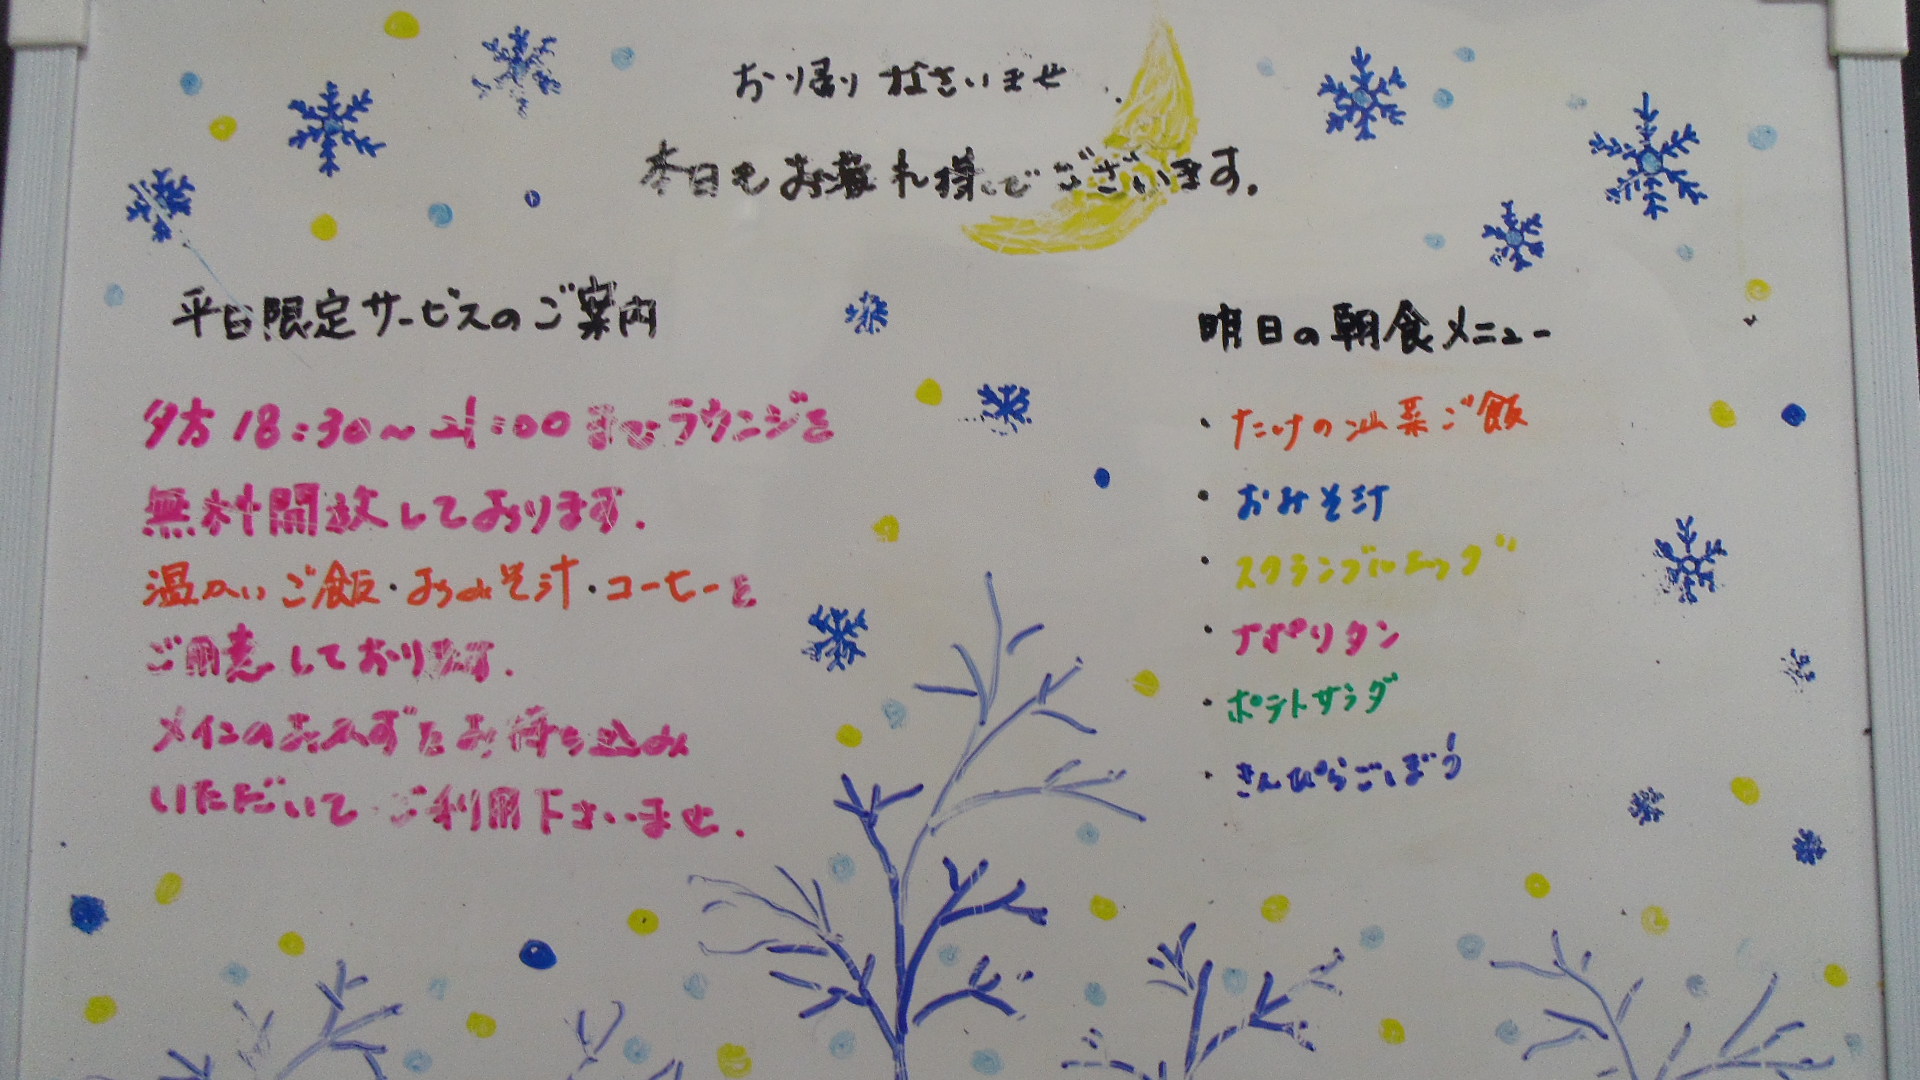 お帰りなさいませ
本日もお疲れ様でございます。
平日限定サービスのご案内
夕方18:30〜21:00までラウンジを
無料開放しております。
温かいご飯・おみそ汁・コーヒーを
ご用意しております。
メインのおかずをお持ち込み
いただいてご利用下さいませ。
明日の朝食メニュー
・たけの山菜ご飯
・おみそ汁
・スクランブルエッグ
・ナポリタン
・ポテトサラダ
・きんぴらごぼう